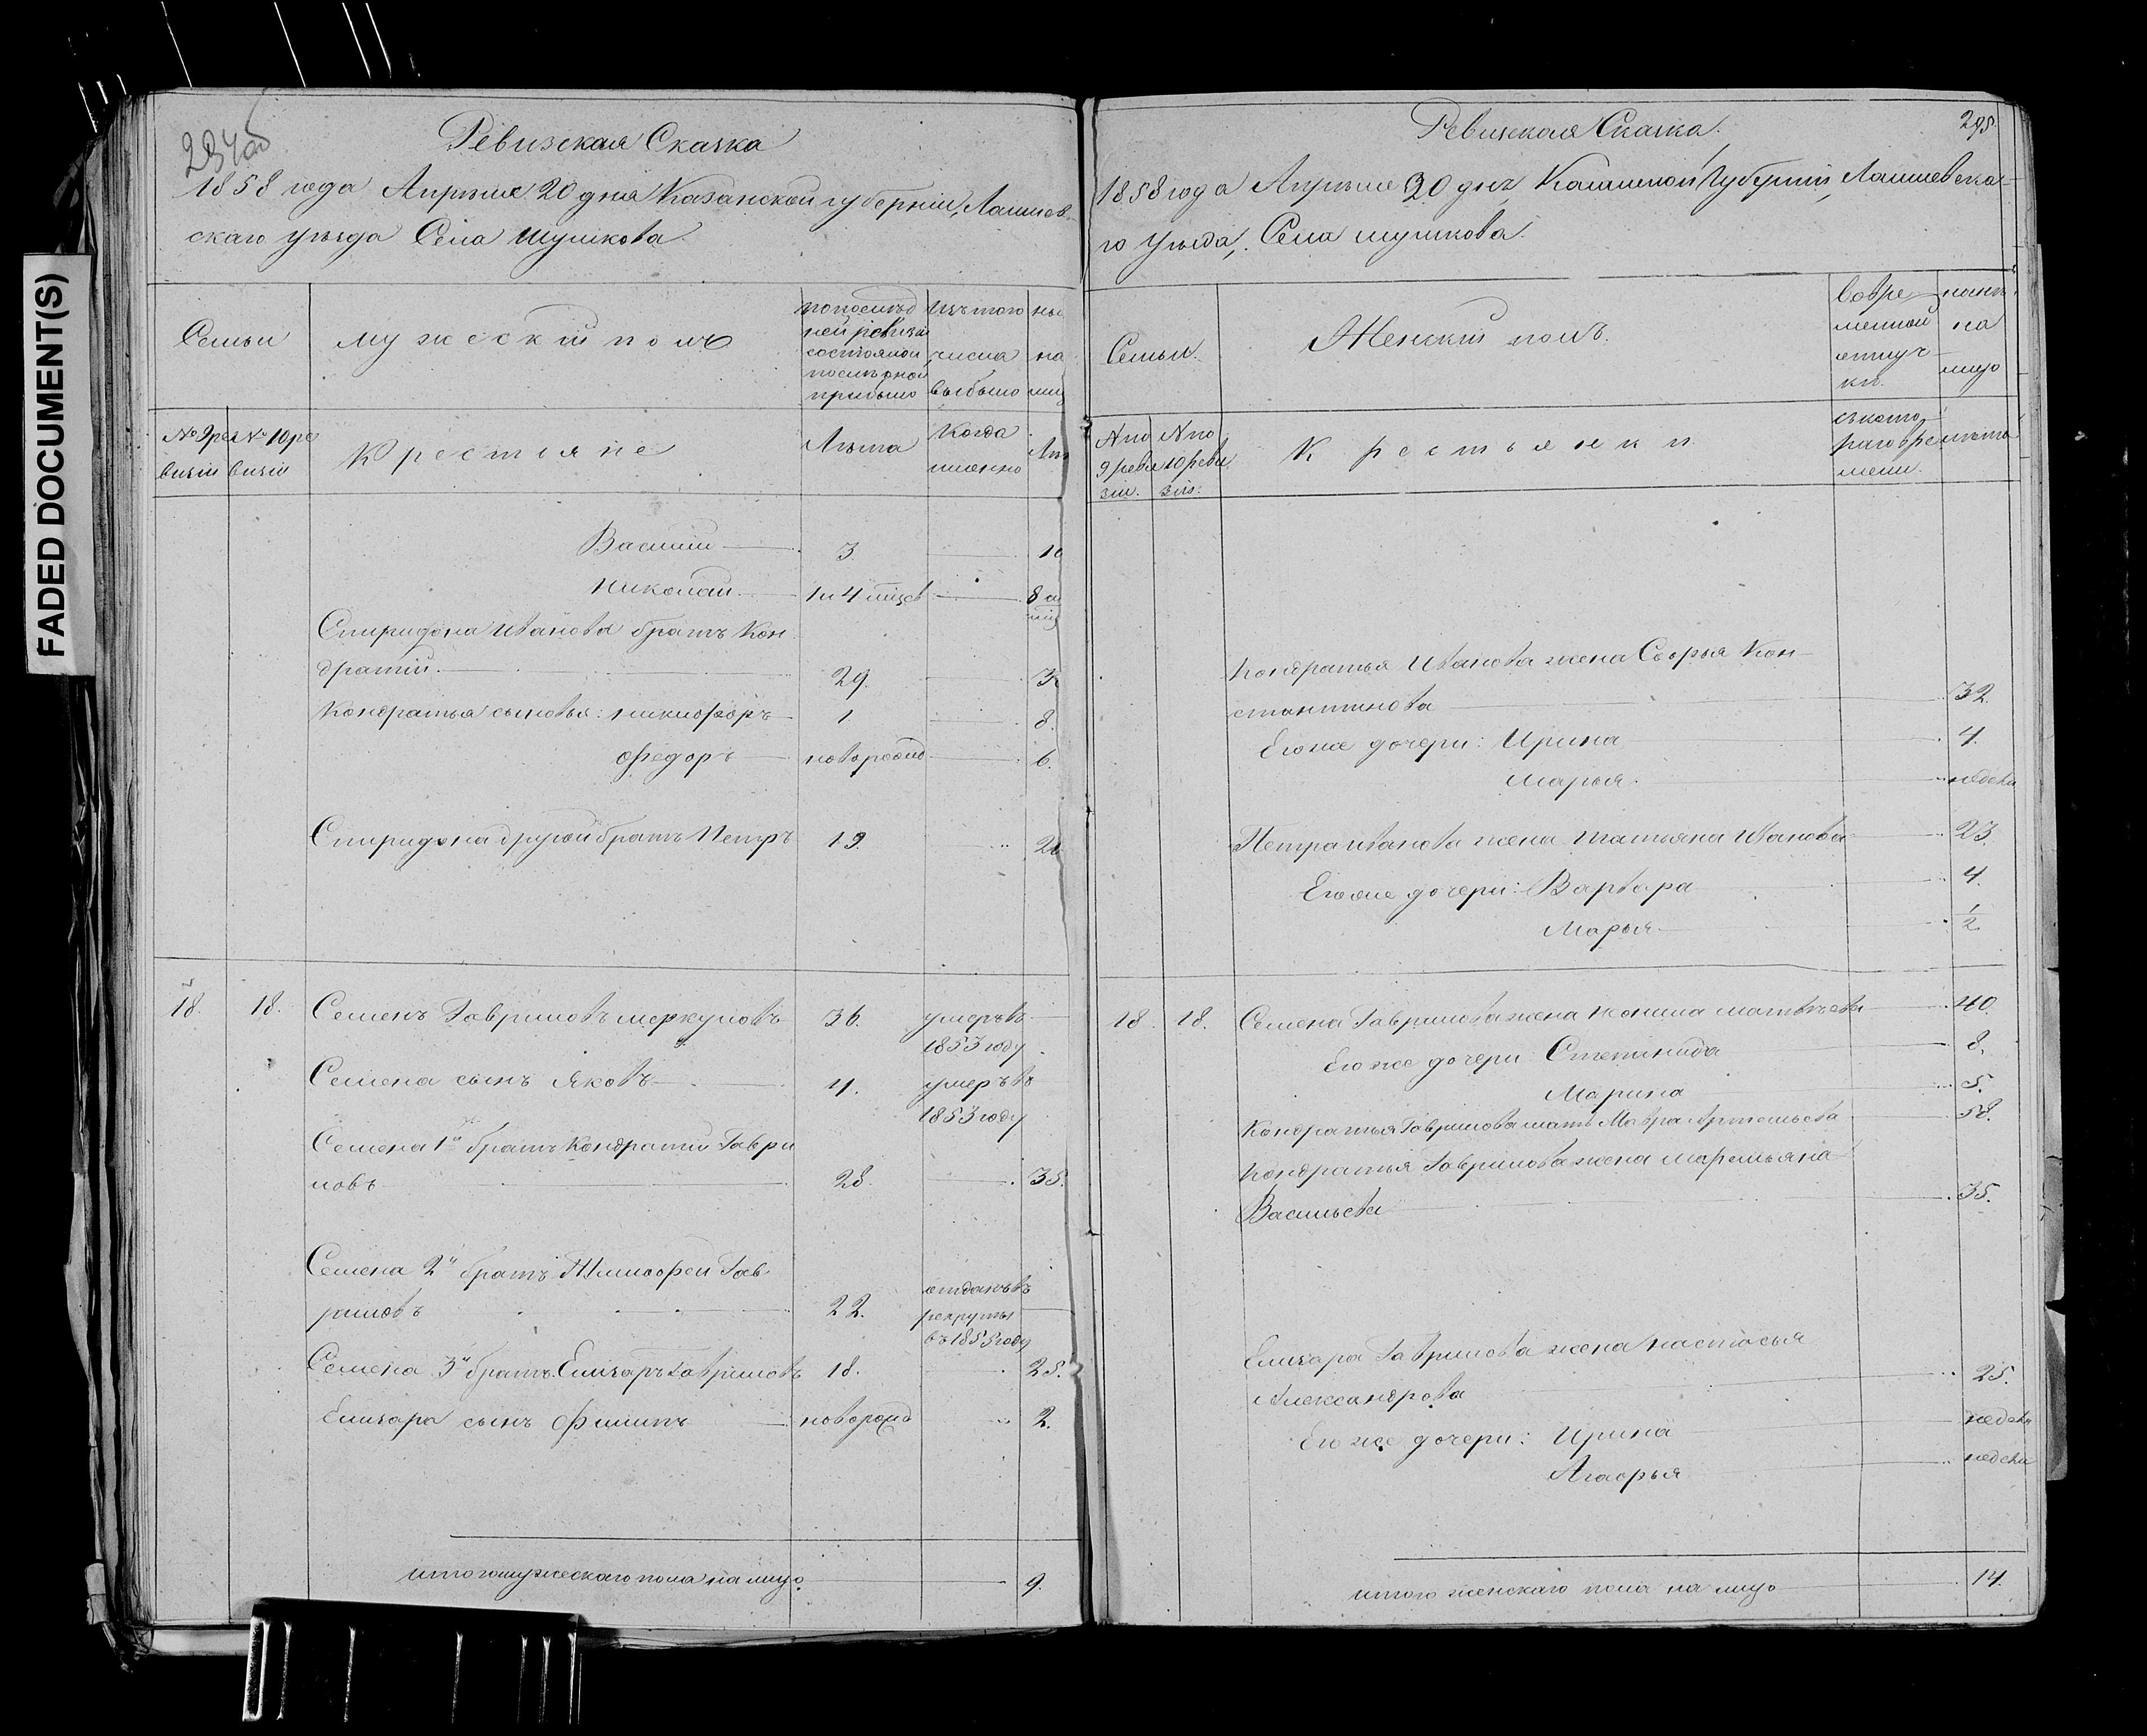 FADED DOCUMENT(S)
294об
Ревизская Сказка
1858 года Апреля 20 дня Казанской губернии, Лаишев
скаго уезда Села Шумкова
Семьи
мужеский полъ
по послед
ней ревизіи
состояло и
после оной
прибыло
Изъ того
числа
выбыло
ны
на
лиц
№ 9 ре
визіи
№ 10 ре
визіи
Крестьяне
Лѣта
Когда
именно
Лѣт
Василий 3. 10
Николай 1 и 4 мцев 8 и
Спиридона Иванова братъ Кон
дратій 29.
Кондратья сыновья: Никифоръ 1 8.
Федоръ новорожд 6.
Спиридона другой братъ Петръ 19.
18. 18. Семенъ Гавриловъ Меркуловъ 36. умеръ въ
1853 году
Семена сынъ Яковъ 4. умеръ въ
1853 году
Семена 1й братъ Кондратій Гаври
ловъ 28. 35.
Семена 2й братъ Тимофей Гав
риловъ 22. отданъ въ
рекруты
въ 1855 году
Семена 3й братъ Елизаръ Гавриловъ 18. 25.
Елизара сынъ Филипъ новорожд 2.
итого мужескаго пола на лицо 9.
295.
Ревизская Сказка.
1858 года Апреля 20 дня, Казанской Губерніи, Лаишевска-
го Уезда, Села Шумкова.
Семьи.
Женский полъ.
Во вре
менной
отлуч
ке.
ныне
на
лицо
№ по
9 реви
зіи.
№ по
10 реви
зіи.
Крестьянки
съ кото
раго вре
мени.
лета
Кондратья Иванова жена Софья Кон-
стантинова 32.
Его же дочери: Ирина 4.
Марья. недели
Петра Иванова жена Татьяна Иванова 23.
Его же дочери: Варвара 4.
Марья 1/2
18. 18. Семена Гаврилова жена Матвеева 40.
Его же дочери Степанида 8.
Марина 5.
Кондратья Гаврилова мать Мавра Артемьева 58.
Кондратья Гаврилова жена Маремьяна
Васильева 35.
Елизара Гаврилова жена Настасья
Александрова 25.
Его же дочери: Ирина недели
Агафья недели
итого женскаго пола на лицо 14.